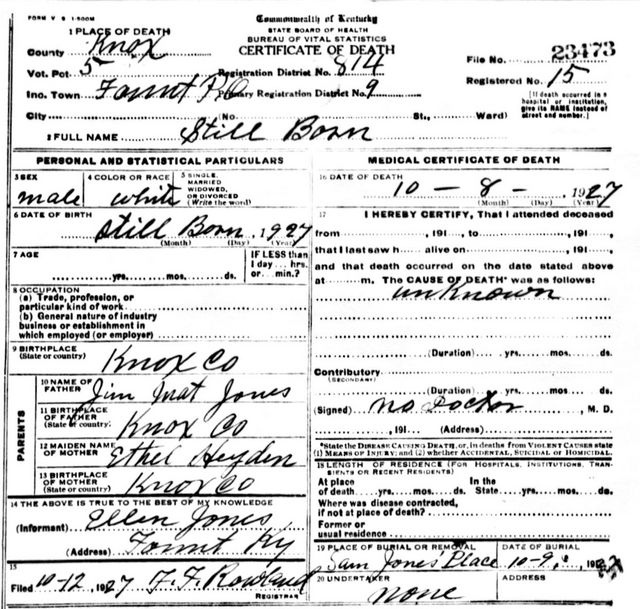 FORM V S 1-500M
Commonwealth of Kentucky
STATE BOARD OF HEALTH
BUREAU OF VITAL STATISTICS
CERTIFICATE OF DEATH
1 PLACE OF DEATH
County Knox
Vot. Pct 5
Inc. Town Fount P.O
City (No. St., Ward)
Registration District No. 814
Primary Registration District No. 9
File No. 23473
Registered No. 15
[If death occurred in a hospital or institution, give its NAME instead of street and number.]
2 FULL NAME Still Born
PERSONAL AND STATISTICAL PARTICULARS
3 SEX male
4 COLOR OR RACE white
5 SINGLE, MARRIED WIDOWED, OR DIVORCED (Write the word)
6 DATE OF BIRTH Still Born, 1927
(Month) (Day) (Year)
7 AGE
yrs. mos. ds.
IF LESS than 1 day ... hrs. or min.?
8 OCCUPATION
(a) Trade, profession, or particular kind of work
(b) General nature of industry business or establishment in which employed (or employer)
9 BIRTHPLACE (State or country) Knox Co
PARENTS
10 NAME OF FATHER Jim Jones
11 BIRTHPLACE OF FATHER (State or country) Knox Co
12 MAIDEN NAME OF MOTHER Ethel Hayden
13 BIRTHPLACE OF MOTHER (State or country) Knox Co
14 THE ABOVE IS TRUE TO THE BEST OF MY KNOWLEDGE
(Informant) Ellen Jones
(Address) Fount Ky
15
Filed 10-12 1927 F.F. Rowland
REGISTRAR
MEDICAL CERTIFICATE OF DEATH
16 DATE OF DEATH
10 - 8 - 1927
(Month) (Day) (Year)
17 I HEREBY CERTIFY, That I attended deceased
from , 191 , to , 191 ,
that I last saw h alive on , 191 ,
and that death occurred on the date stated above
at m. The CAUSE OF DEATH* was as follows:
unKnown
(Duration) yrs. mos. ds.
Contributory
(SECONDARY)
(Duration) yrs. mos. ds.
(Signed) no Doctor , M. D.
, 191 (Address)
*State the DISEASE CAUSING DEATH, or, in deaths from VIOLENT CAUSES state (1) MEANS OF INJURY; and (2) whether ACCIDENTAL, SUICIDAL or HOMICIDAL.
18 LENGTH OF RESIDENCE (FOR HOSPITALS, INSTITUTIONS, TRANSIENTS OR RECENT RESIDENTS)
At place of death yrs. mos. ds. In the State yrs. mos. ds.
Where was disease contracted, if not at place of death?
Former or usual residence
19 PLACE OF BURIAL OR REMOVAL Sam Jones' Place
DATE OF BURIAL 10-9, 1927
20 UNDERTAKER none
ADDRESS